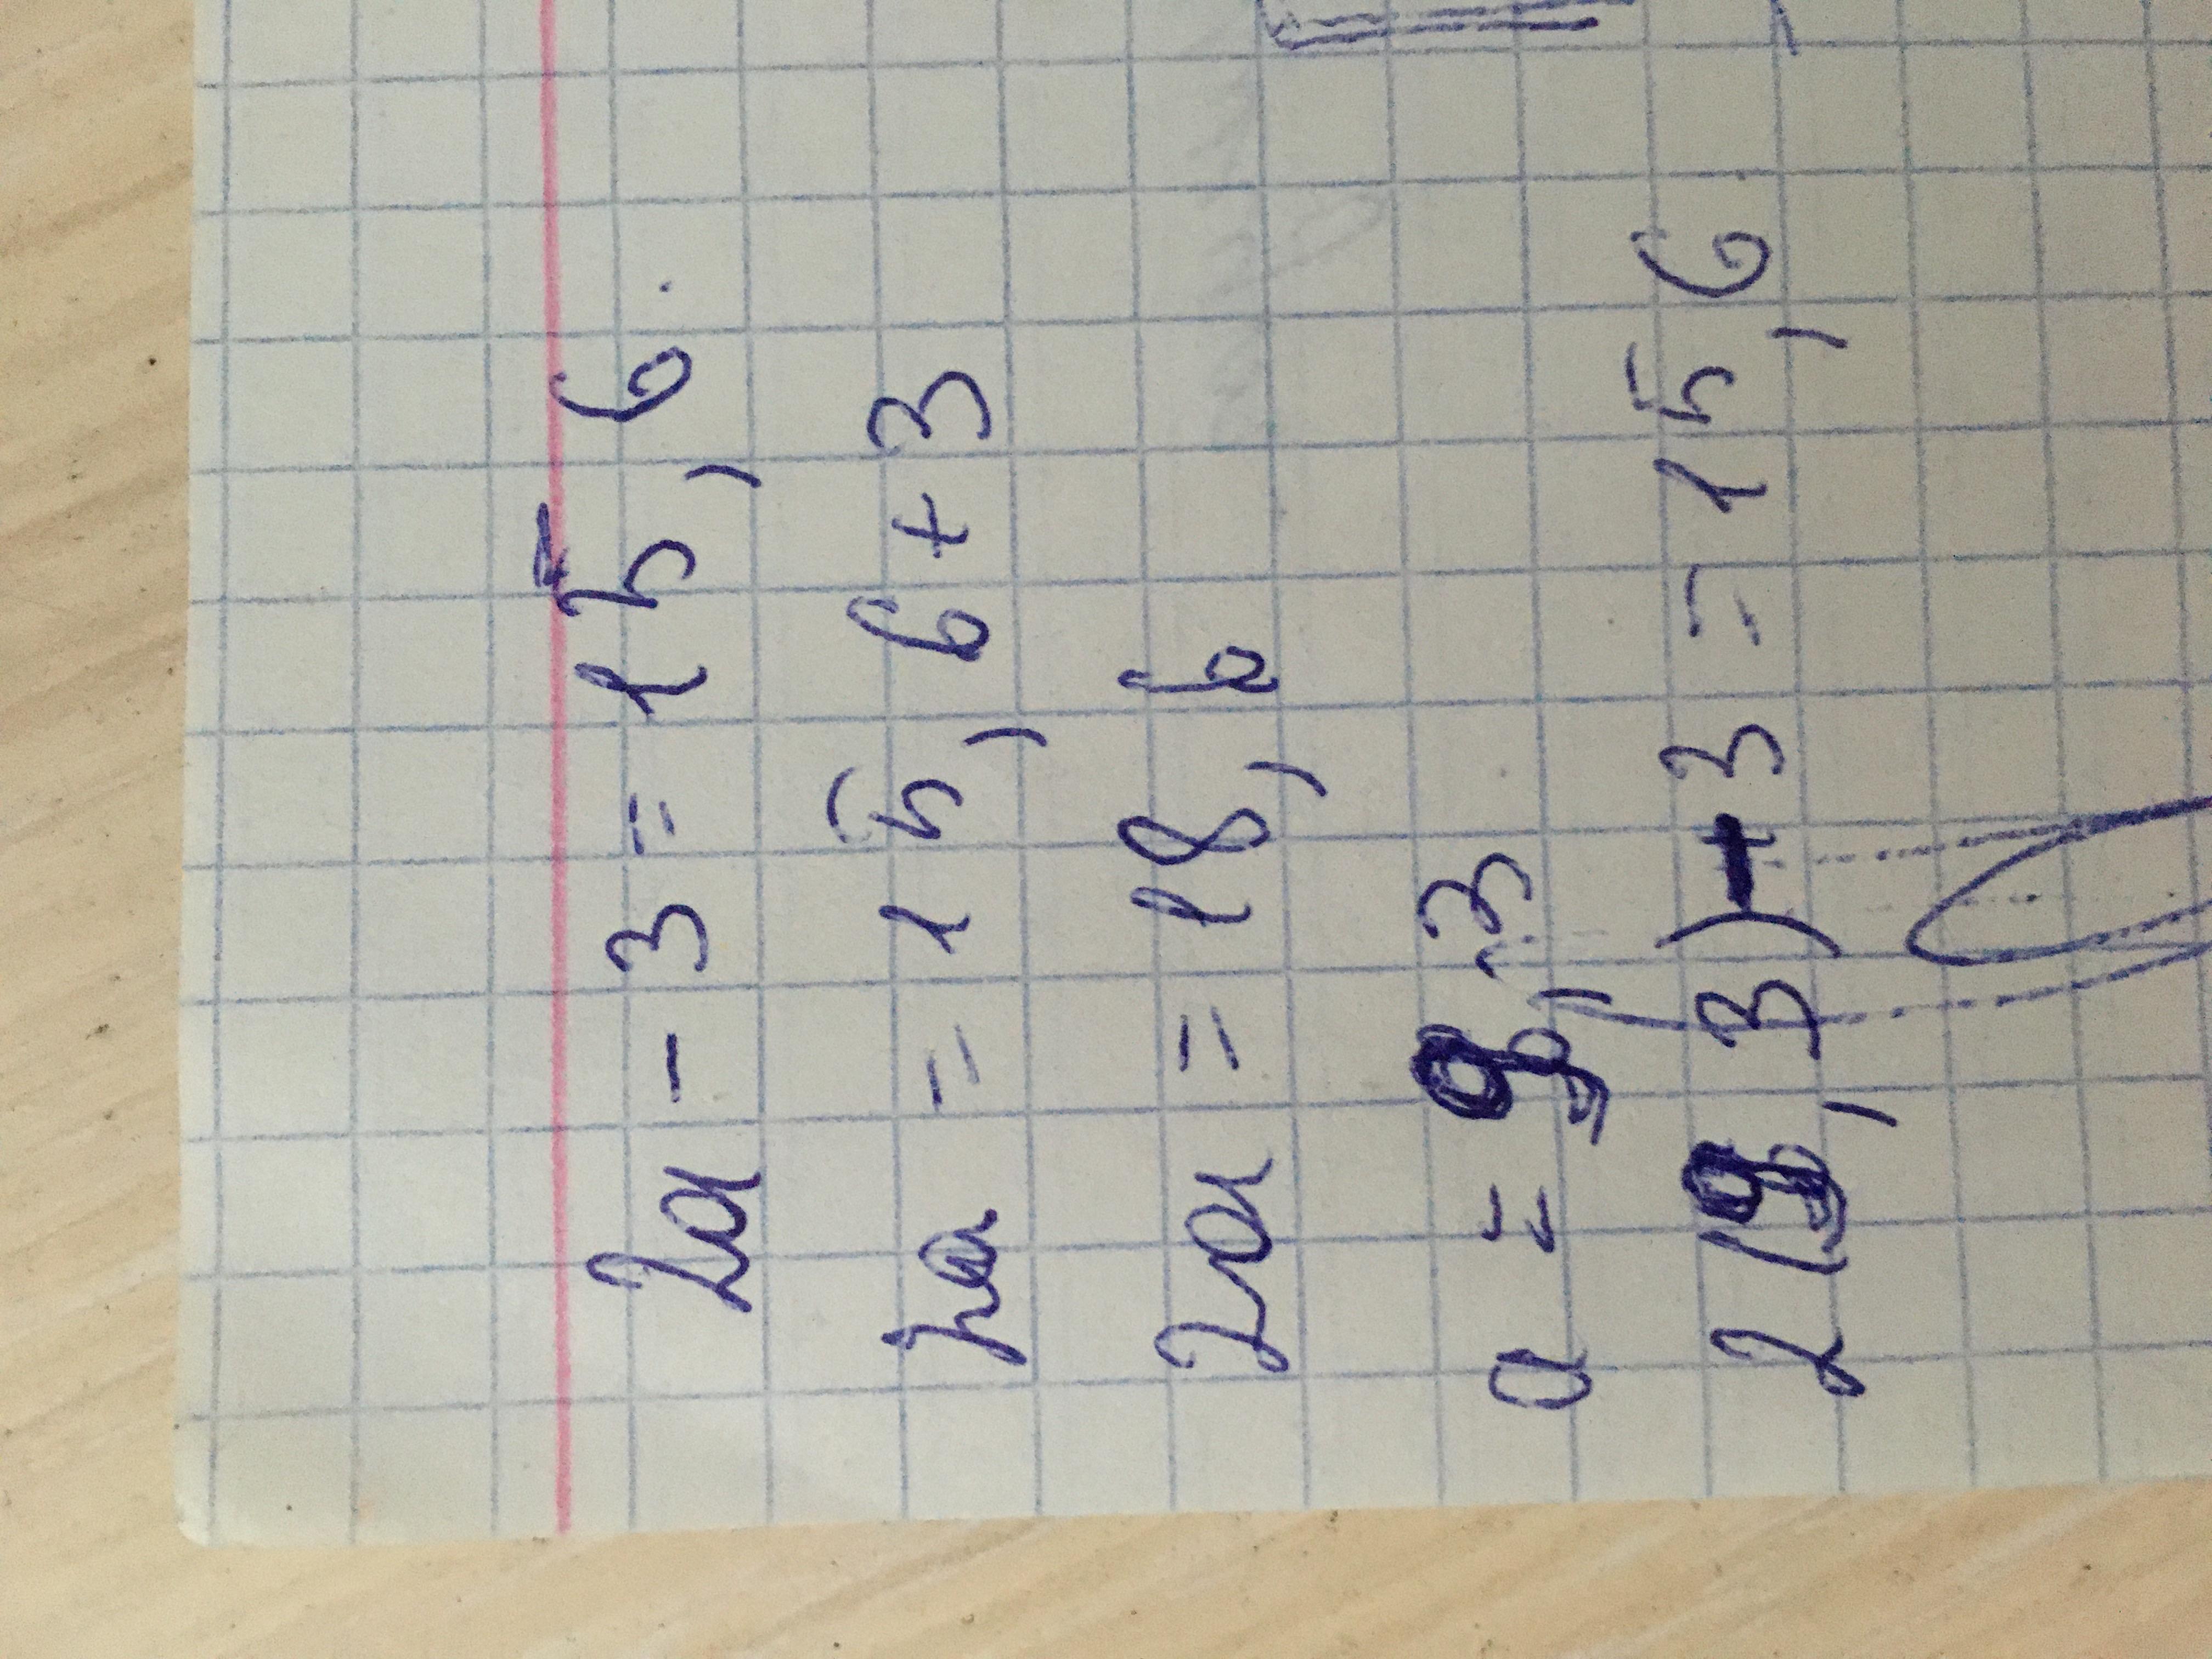 2a - 3 = 15,6
2a = 15,6 + 3
2a = 18,6
a = 9,3
2(9,3) - 3 = 15,6